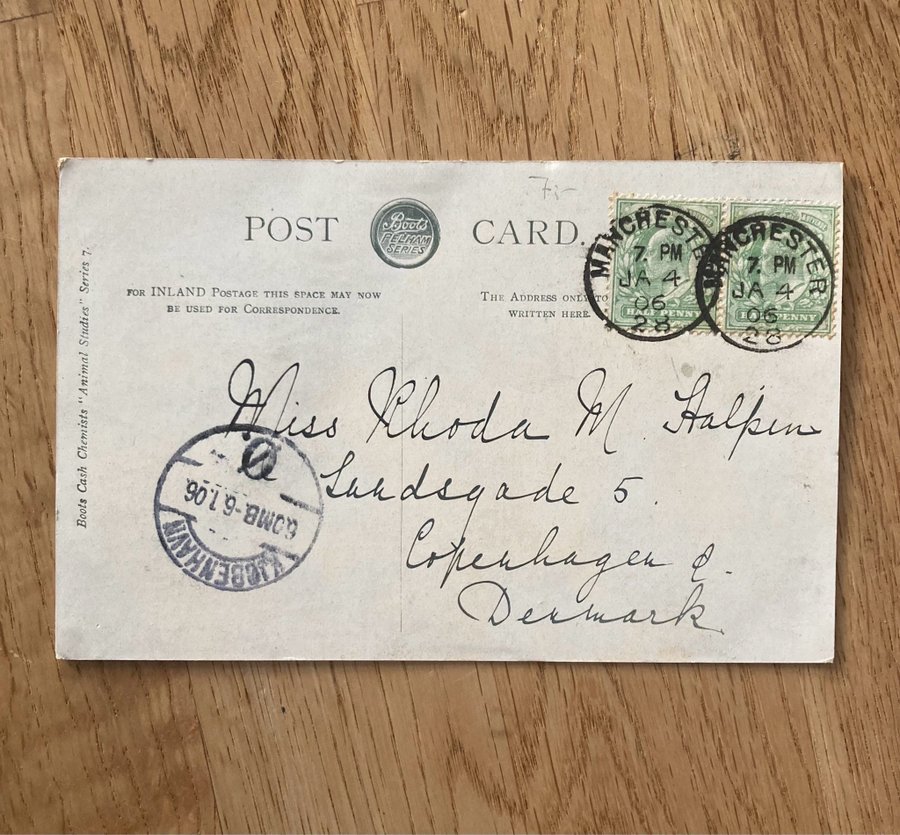 7,-
POST
Boots
PELHAM
SERIES
CARD.
FOR INLAND POSTAGE THIS SPACE MAY NOW
BE USED FOR CORRESPONDENCE.
THE ADDRESS ONLY TO
WRITTEN HERE.
MANCHESTER
7. PM
JA 4
06
28
HALF PENNY
MANCHESTER
7. PM
JA 4
06
28
PENNY
Boots Cash Chemists "Animal Studies" Series 7.
Miss Rhoda M Halpin
Lundsgade 5.
Copenhagen Ø.
Denmark
KJØBENHAVN
6.OMB.-6.1.06.
Ø